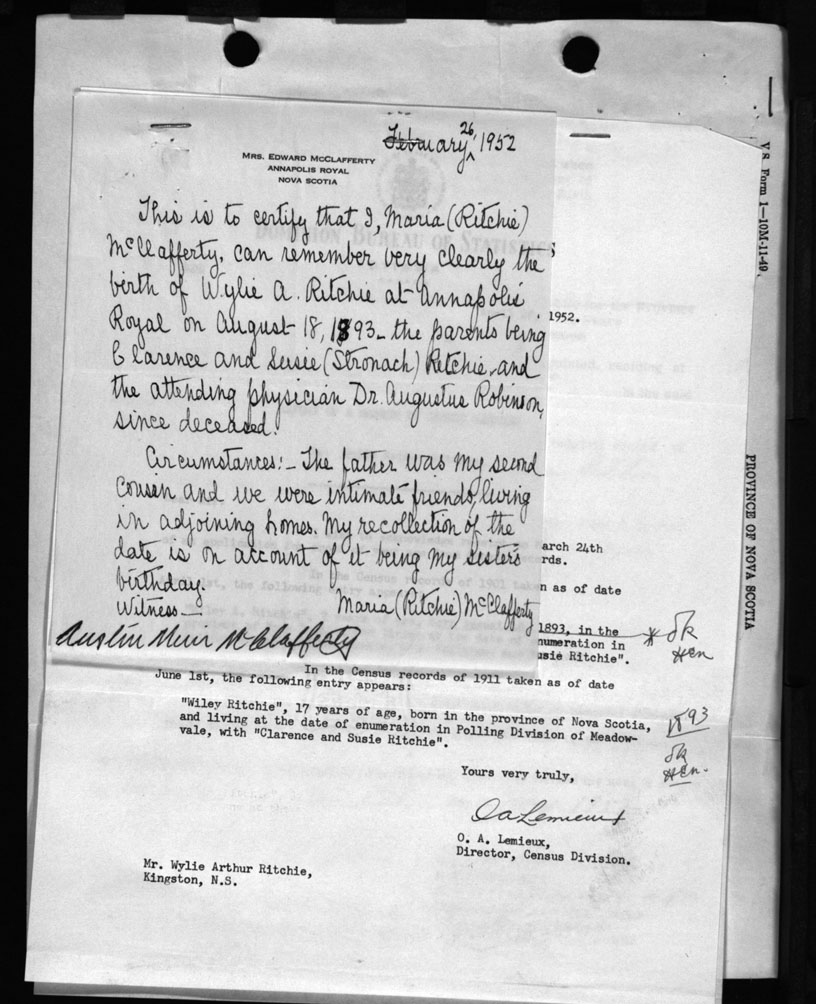 February 26, 1952
MRS. EDWARD MCCLAFFERTY
ANNAPOLIS ROYAL
NOVA SCOTIA
This is to certify that I, Maria (Ritchie)
McClafferty, can remember very clearly the
birth of Wylie A. Ritchie at Annapolis
Royal on August 18, 1893 - the parents being
Clarence and Susie (Stronach) Ritchie, and
the attending physician Dr. Augustus Robinson,
since deceased.
Circumstances:- The father was my second
cousin and we were intimate friends, living
in adjoining homes. My recollection of the
date is on account of it being my sister's
birthday.
Maria (Ritchie) McClafferty
Witness -
Austin Muir McClafferty
DOMINION BUREAU OF STATISTICS
1952.
arch 24th
rds.
n as of date
1893, in the
numeration in
usie Ritchie".
* ok
HEN
In the Census records of 1911 taken as of date
June 1st, the following entry appears:
"Wiley Ritchie", 17 years of age, born in the province of Nova Scotia,
and living at the date of enumeration in Polling Division of Meadow-
vale, with "Clarence and Susie Ritchie".
1893
ok
HEN.
Yours very truly,
OALemieux
O. A. Lemieux,
Director, Census Division.
Mr. Wylie Arthur Ritchie,
Kingston, N.S.
VS Form 1-10M-11-49
PROVINCE OF NOVA SCOTIA